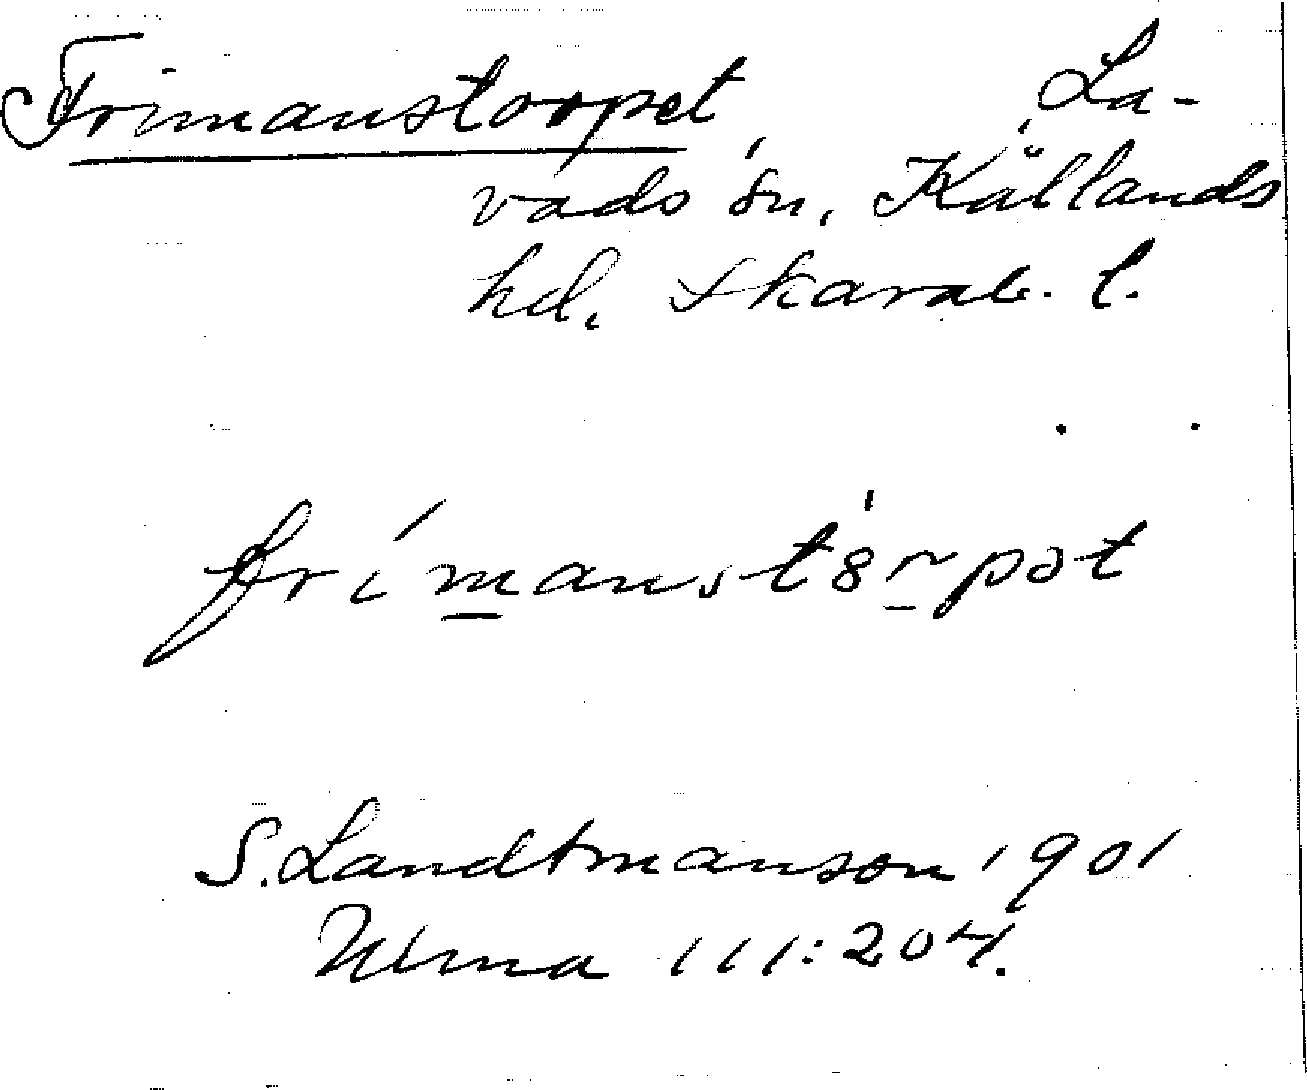 Frimanstorpet, La-
vads sn, Kållands
hd, Skarab. l.
frímanstȣ́rpət
S. Landtmanson 1901
Ulma 111:204.